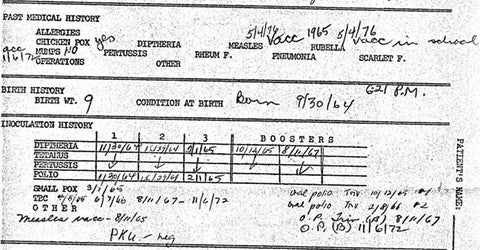 PAST MEDICAL HISTORY
ALLERGIES 5/4/76 1965 5/4/76
CHICKEN POX yes DIPTHERIA MEASLES Vacc RUBELLA Vacc in school
MUMPS NO PERTUSSIS RHEUM F. PNEUMONIA SCARLET F.
OPERATIONS OTHER
acc 11/6/72
BIRTH HISTORY 621 P.M.
BIRTH WT. 9 CONDITION AT BIRTH Born 9/30/64
INOCULATION HISTORY
1 2 3 BOOSTERS
DIPTHERIA 11/30/64 12/29/64 2/1/65 10/12/65 8/11/67
TETANUS
PERTUSSIS
POLIO 11/30/64 12/29/64 2/1/65
SMALL POX 3/1/65 Oral polio Triv 10/12/65 #1
TEC 6/7/66 8/11/67 - 11/6/72 Oral polio Triv 2/8/66 #2
OTHER O.P. Triv (B) 8/11/67
Measles vacc - 8/11/65 O.P. (B) 11/6/72
PKU - neg
PATIENT'S NAME